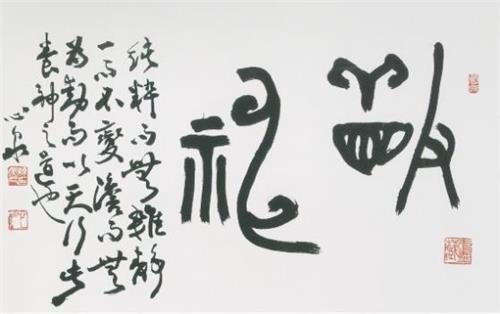 養神
純粹而無雜靜
一而不變澹而無
為動而以天行此
養神之道也
心泉